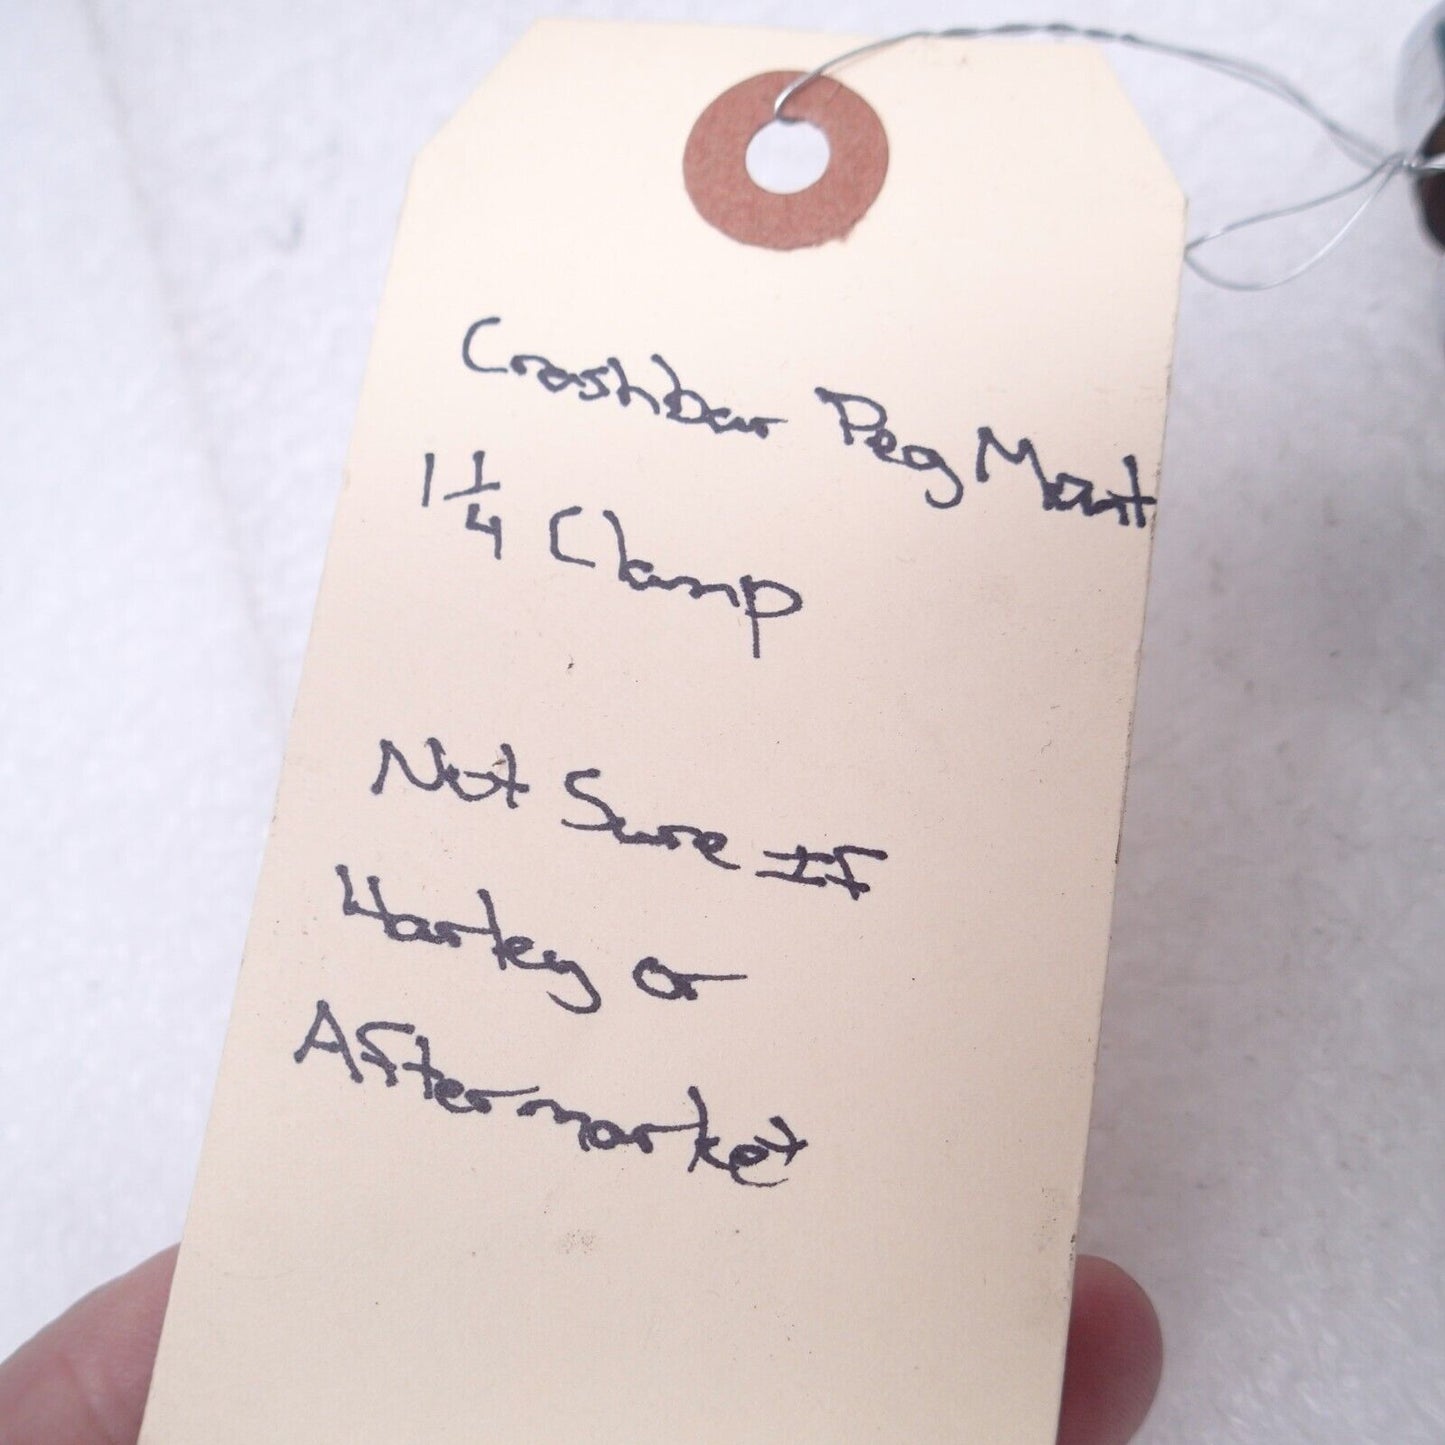 Crashbar Peg Mount
1 1/4 Clamp
Not Sure IF
Harley or
AFtermarket